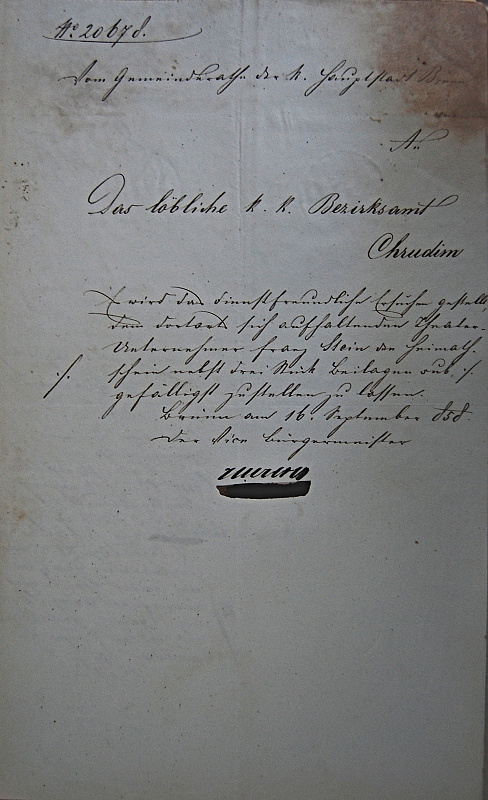 No 20678.
Vom Gemeinderathe der k. Hauptstadt Brünn
An
Das löbliche k. k. Bezirksamt
Chrudim
Es wird das dienstfreundliche Ersuchen gestellt,
dem dortorts sich aufhaltenden Theater-
Unternehmer Franz Stein den Heimath-
./. schein nebst drei Stück Beilagen sub ./.
gefälligst zustellen zu lassen.
Brünn am 16. September 858
Der Vice Bürgermeister